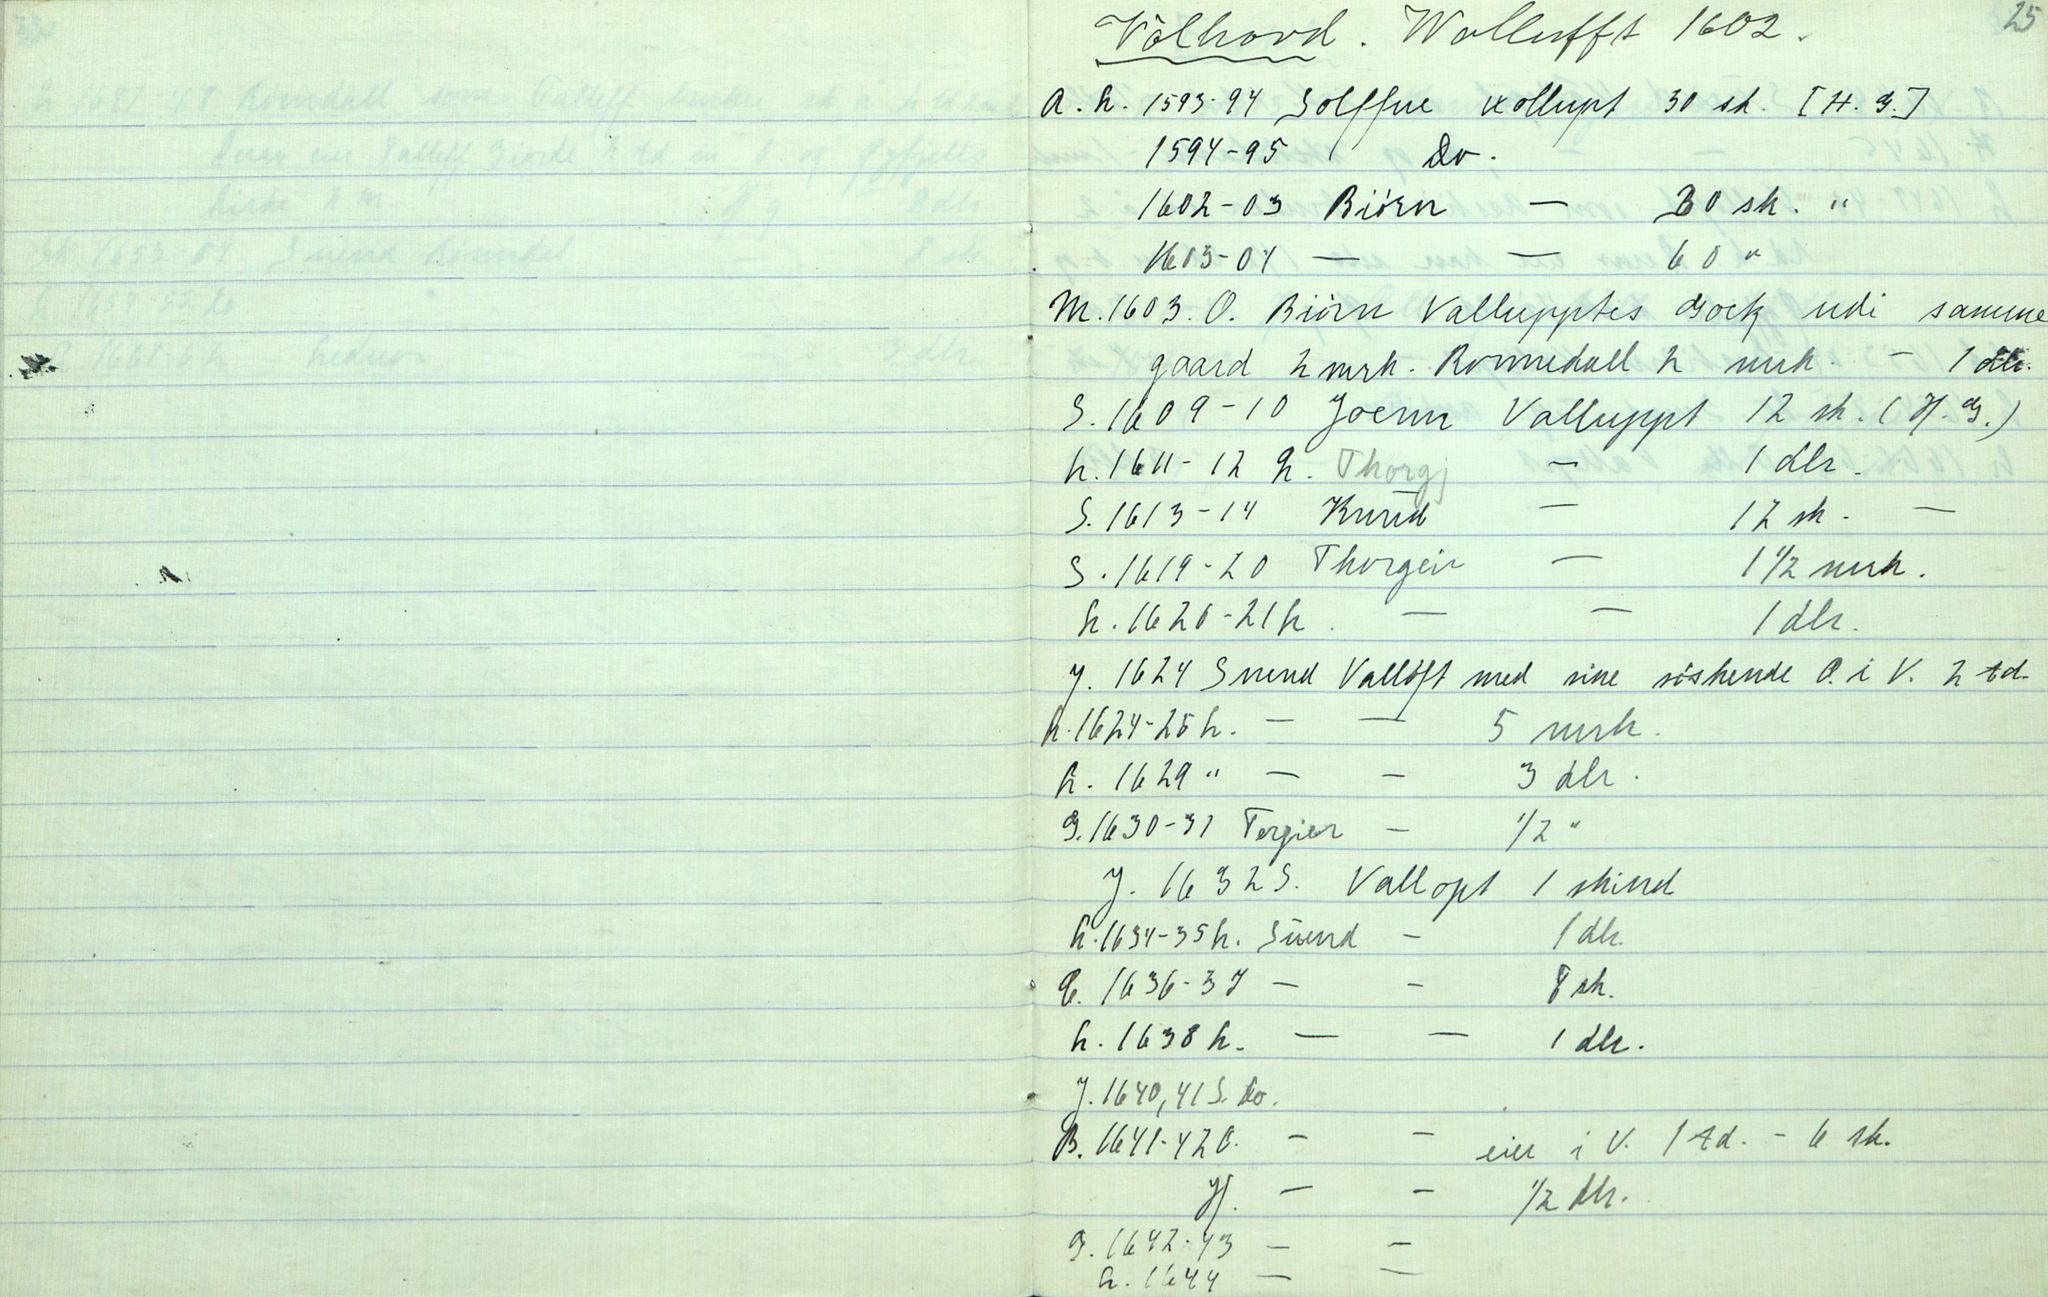 25
Völhovd. Wollufft 1602.
A. h. 1593-94 Solffue Wollupt 30 sk. [H. G.]
1594-95 Do.
1602-03 Biörn — 30 sk. "
1603-04 — — 60 "
M. 1603. O. Biörn Vallupptes Gotz udi samme
gaard 2 mrk. Rommedall 2 mrk. — 1 dlr.
S. 1609-10 Joenn Valluppt 12 sk. (H. G.)
h. 1611-12 h. Thorgj — 1 dlr.
S. 1613-14 Knud — 12 sk. —
S. 1619-20 Thorgeir — 1 1/2 mrk.
h. 1620-21 h. — — 1 dlr.
J. 1624 Suend Vallöft med sine söskende O. i V. 2 td.
h. 1624-25 h. — — 5 mrk.
h. 1629 " — — 3 dlr.
G. 1630-31 Tergier — 1/2 "
J. 1632 S. Vallopt 1 skind
h. 1634-35 h. Suend — 1 dlr.
1636-37 — — 8 sk.
h. 1638 h. — — 1 dlr.
J. 1640, 41 S. Do.
B. 1641-42 O. — — eier i V. 1 td. - 6 sk.
H. — — 1/2 dlr.
G. 1642-43 — —
h. 1644 — —